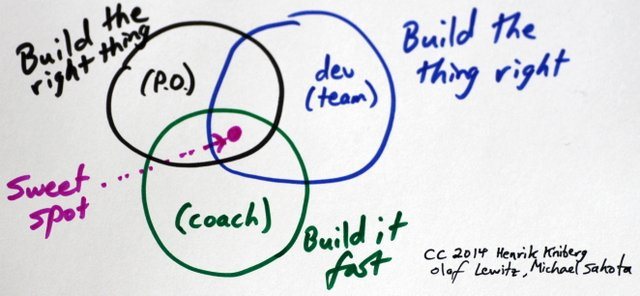 Build the
right thing
(P.O.)
dev
(team)
Build the
thing right
sweet
spot
(coach)
Build it
fast
CC 2014 Henrik Kniberg
Olaf Lewitz, Michael Sahota